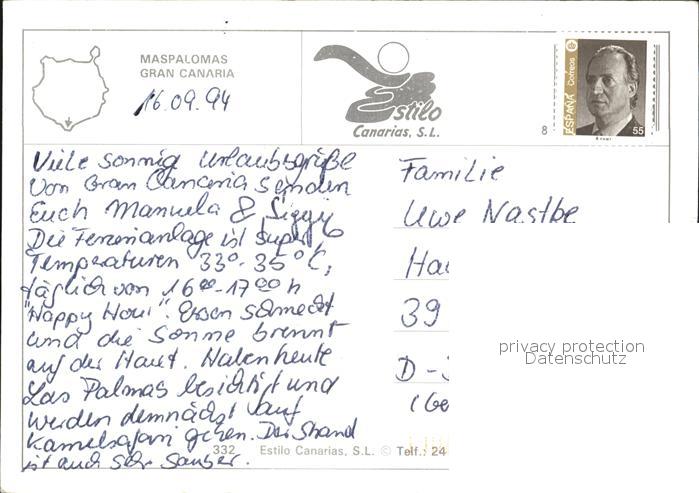 MASPALOMAS
GRAN CANARIA
16.09.94
Estilo
Canarias, S.L.
ESPAÑA Correos
55
8
Viele sonnig Urlaubsgrüße
von Gran Canaria senden
Euch Manuela & Siggi
Die Ferienanlage ist super,
Temperaturen 33°-35°C,
täglich von 16⁰⁰-17⁰⁰ h
"Happy Hour". Essen schmeckt
und die Sonne brennt
auf der Haut. Haben heute
Las Palmas besichtigt und
werden demnächst auf
Kamelsafari gehen. Der Strand
ist auch sehr sauber.
Familie
Uwe Nastke
Ha
39
D-
332 Estilo Canarias, S.L. © Telf.: 24
privacy protection
Datenschutz